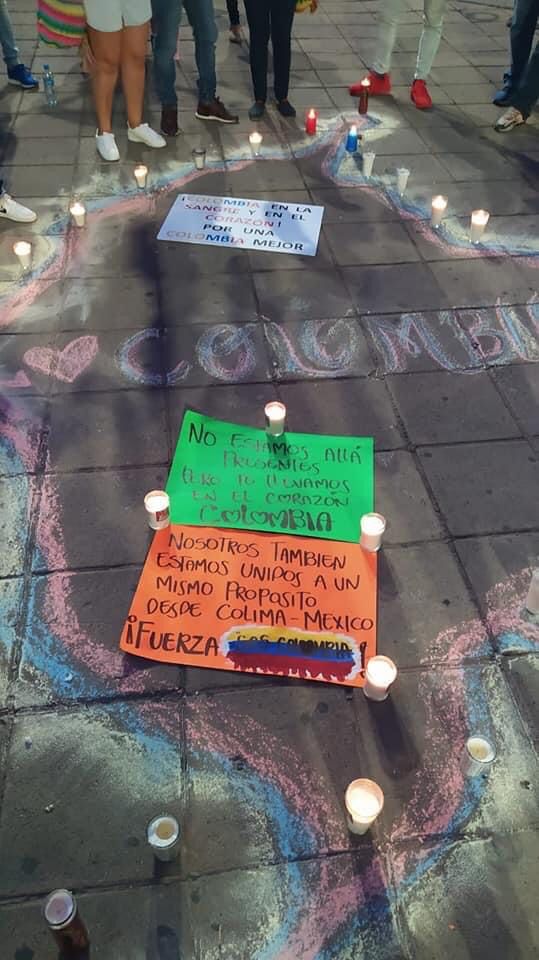 ¡COLOMBIA EN LA
SANGRE Y EN EL
CORAZÓN!
POR UNA
COLOMBIA MEJOR
COLOMBI
NO ESTAMOS ALLÁ
PRESENTES
PERO TE LLEVAMOS
EN EL CORAZÓN
COLOMBIA
NOSOTROS TAMBIEN
ESTAMOS UNIDOS A UN
MISMO PROPASITO
DESDE COLIMA-MEXICO
¡FUERZA COLOMBIA!